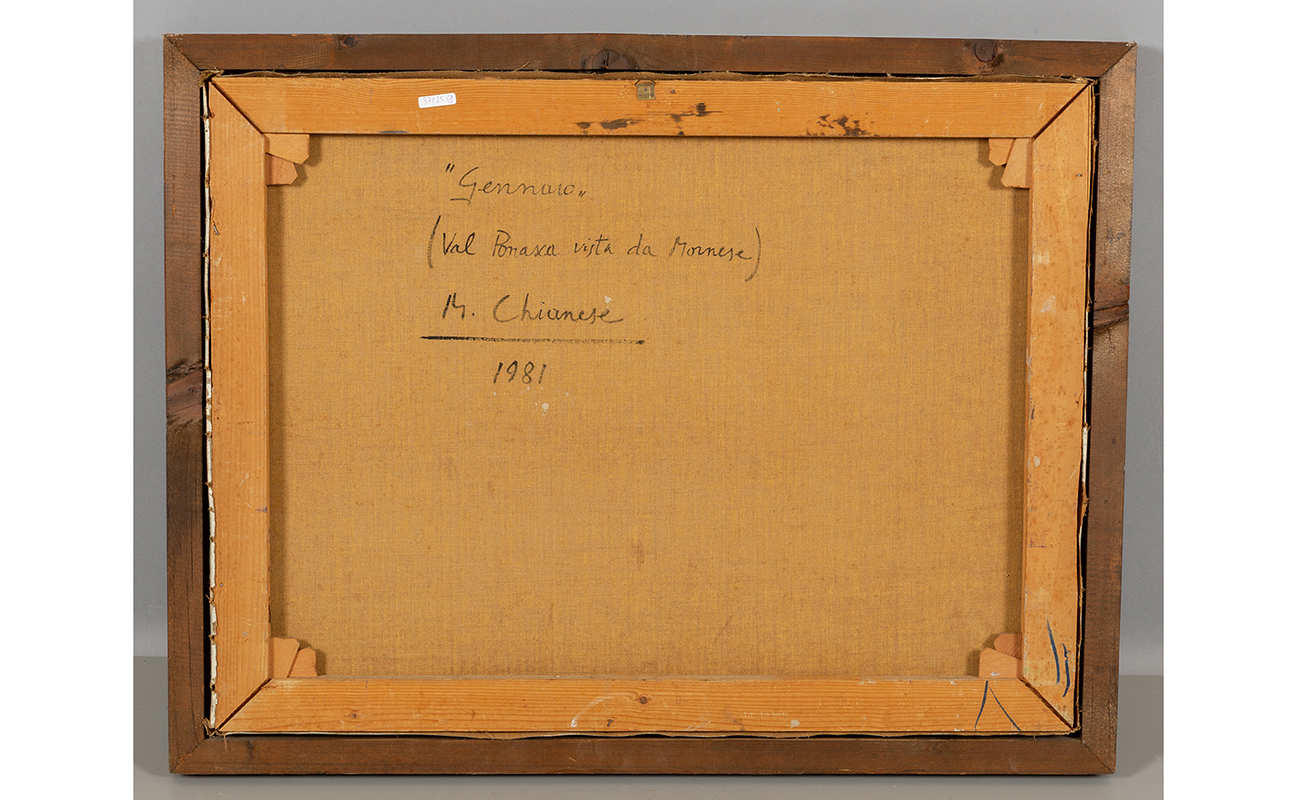 "Gennaio"
(Val Ponasca vista da Mornese)
M. Chianese
1981